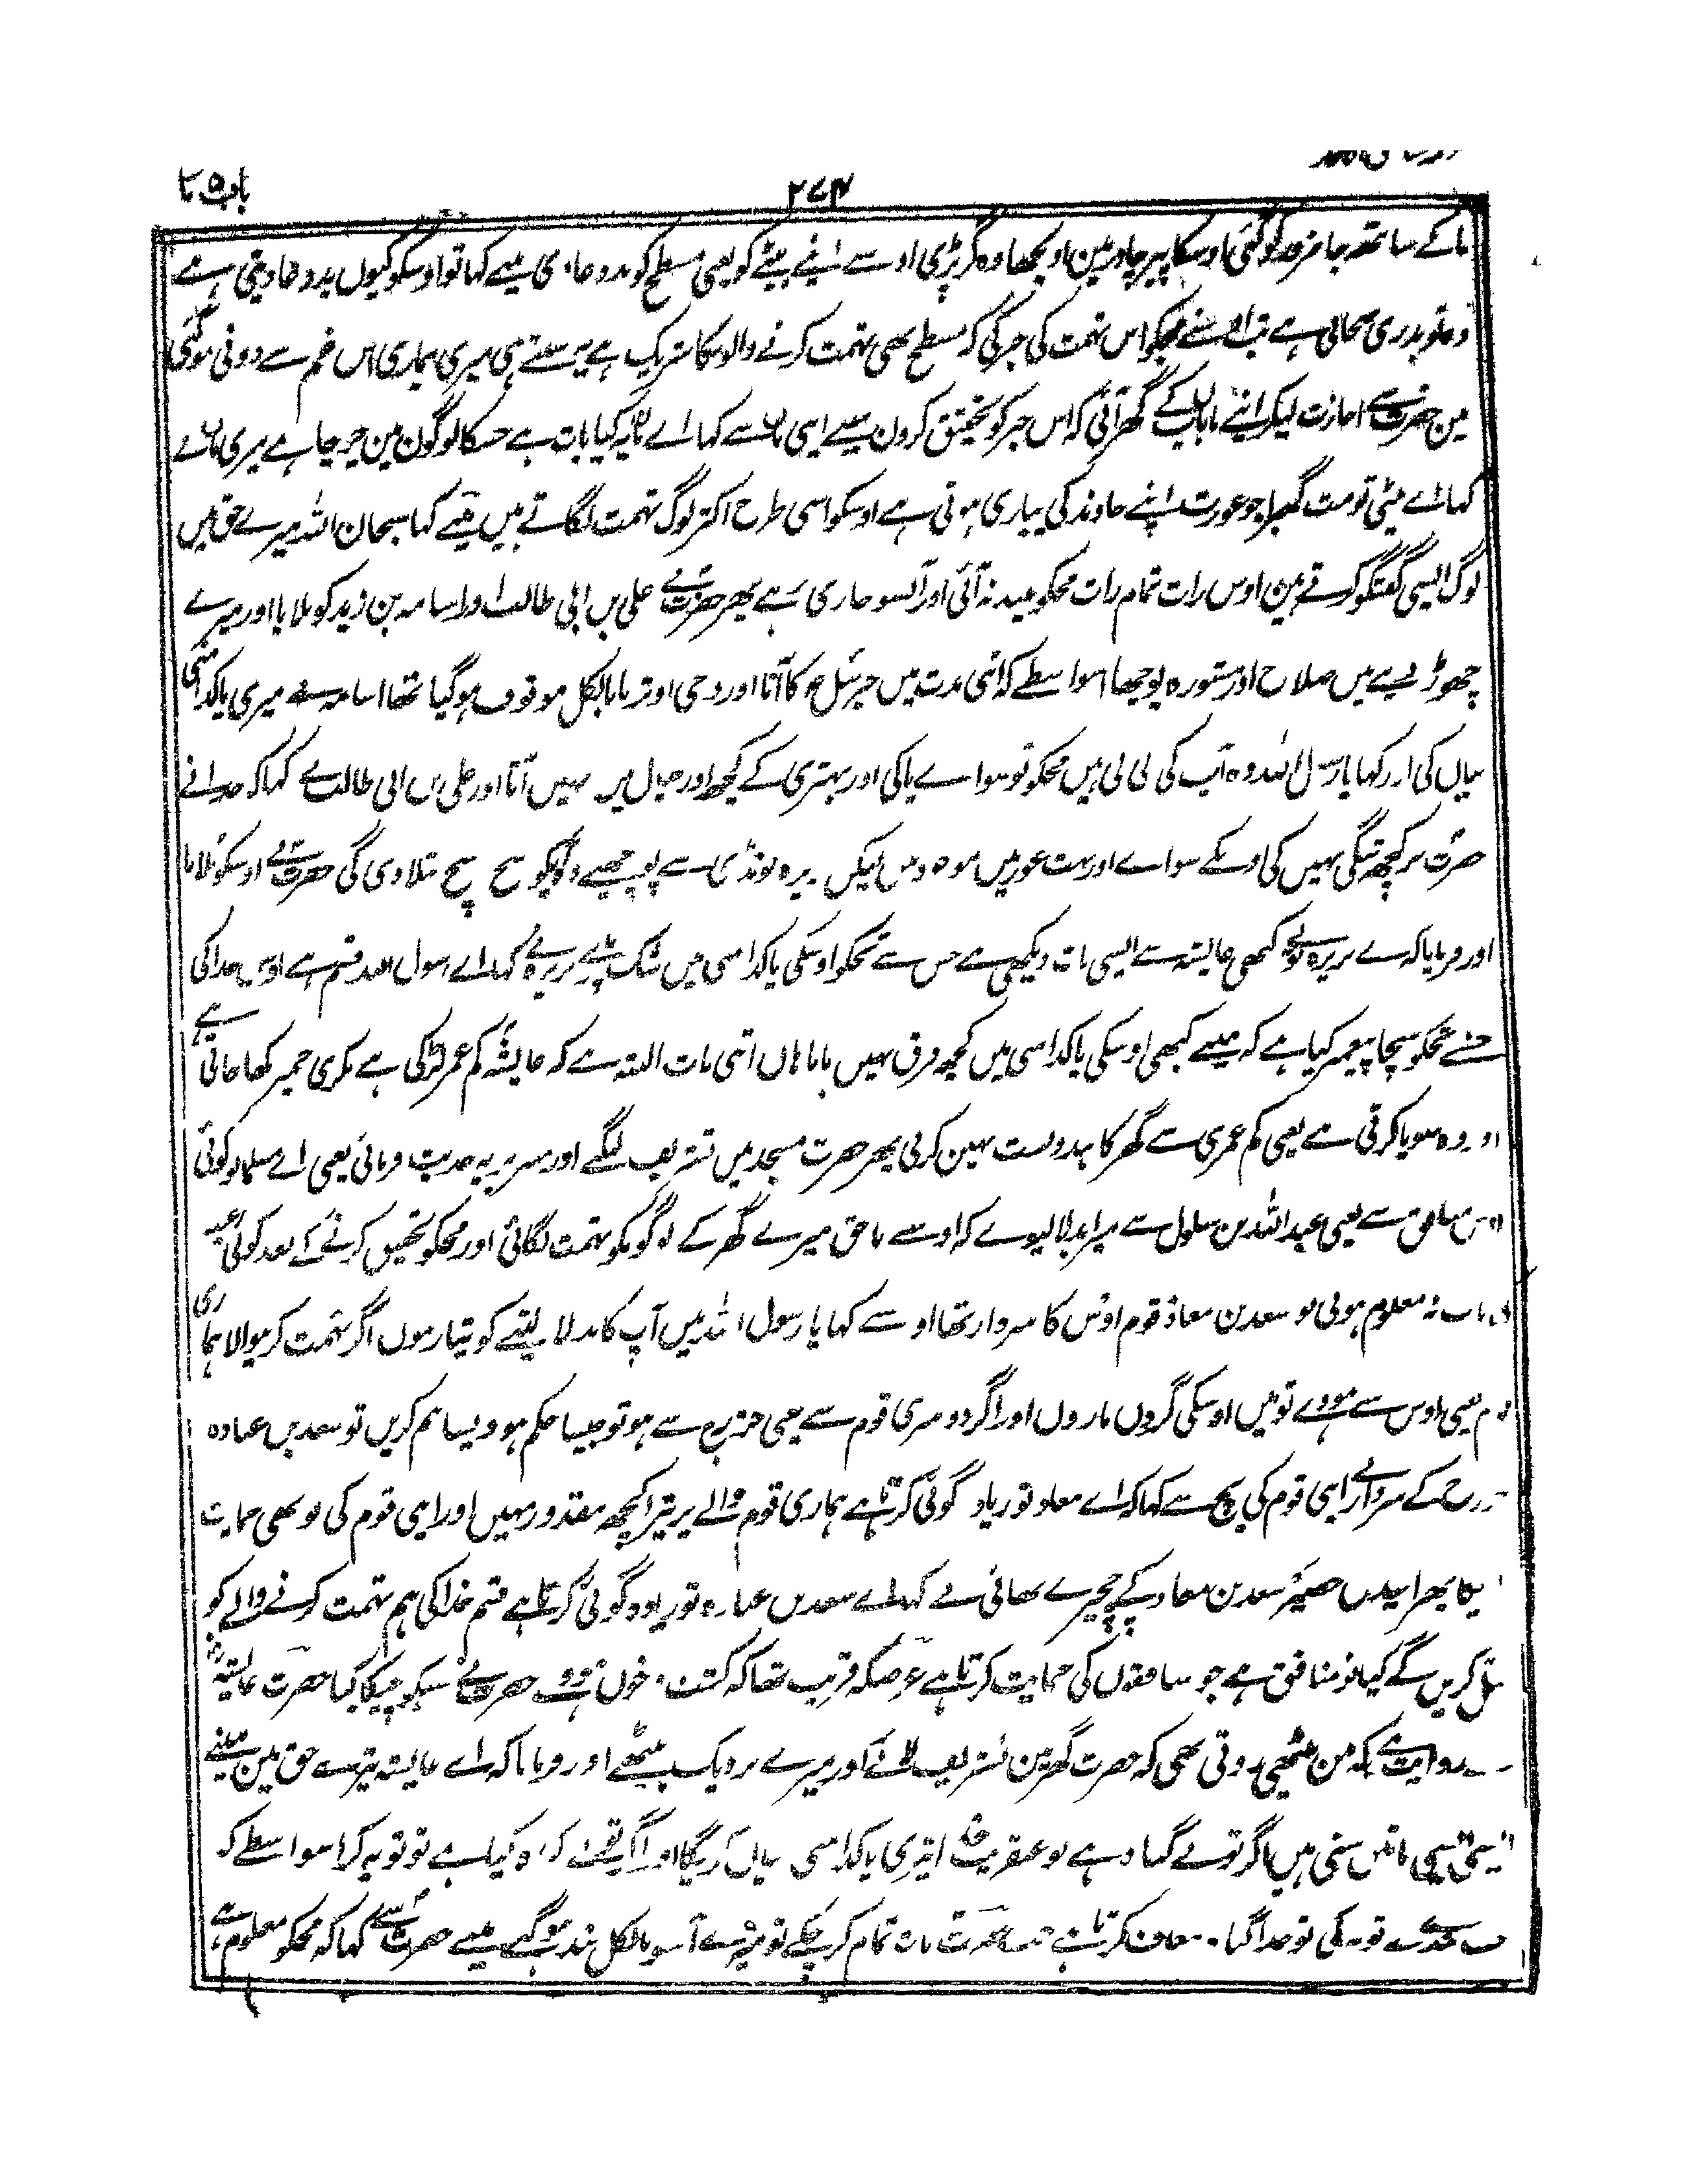 باب ۵
۲۷۴
ما کے ساتھ جا ضرور کو گئی اوسکا پیر چادر مین اولجھا وہ گر پڑی اوسنے اپنے بیٹے کو یعنی مسطح کو بددعا دی مینے کہا تو اوسکو کیوں بددعا دیتی ہے
وہ تو بدری صحابی ہے تب اوسنے مجکو اس تہمت کی خبر کی کہ مسطح بھی تہمت کرنے والونکا شریک ہے یہ سنتے ہی میری بیماری اس غم سے دونی ہوگئی
مین حضرت سے اجازت لیکر اپنے ما باپ کے گھر آئی کہ اس خبر کو تحقیق کرون مینے اپنی ما سے کہا اے ما یہ کیا بات ہے جسکا لوگون مین چرچا ہے میری ما نے
کہا اے بیٹی تو مت گھبرا جو عورت اپنے خاوند کی پیاری ہوتی ہے اوسکو اسی طرح اکثر لوگ تہمت لگاتے ہیں مینے کہا سبحان اللہ میرے حق میں
لوگ ایسی گفتگو کرتے ہین اوس رات تمام رات مجکو نیند نہ آئی اور آنسو جاری رہے پھر حضرت نے علی بن ابی طالب اور اسامہ بن زید کو بلایا اور میرے
چھوڑ دینے میں صلاح اور مشورہ پوچھا اسواسطے کہ اتنی مدت میں جبرئیل کا آنا اور وحی اوترنا بالکل موقوف ہوگیا تھا اسامہ نے میری پاکدامنی
بیاں کی اور کہا یا رسول اللہ وہ آپ کی بی بی ہیں مجکو تو سوائے پاکی اور بہتری کے کچھ اور خیال میں نہیں آتا اور علی بن ابی طالب نے کہا کہ خدا نے
حضرت پر کچھ تنگی نہیں کی اوسکے سوائے اور بہت عورتیں موجود ہیں لیکن بریرہ لونڈی سے پوچھیے وہ آپکو سچ سچ بتلا دی گی حضرت نے اوسکو بلایا
اور فرمایا کہ اے بریرہ تونے کبھی عایشہ سے ایسی بات دیکھی ہے جس سے تجکو اوسکی پاکدامنی میں شک پڑے بریرہ نے کہا اے رسول اللہ قسم ہے اوس خدا کی
جسنے تجکو سچا پیغمبر کیا ہے کہ مینے کبھی اوسکی پاکدامنی میں کچھ فرق نہیں پایا ہاں اتنی بات البتہ ہے کہ عایشہ کم عمر لڑکی ہے بکری خمیر کھا جاتی ہے
اور وہ سویا کرتی ہے یعنی کم عمری سے گھر کا بندوبست نہین کرتی پھر حضرت مسجد میں تشریف لیگئے اور منبر پر یہ حدیث فرمائی یعنی اے مسلمانو کوئی
اوس منافق سے یعنی عبداللہ بن سلول سے میرا بدلا لیوے کہ اوسنے ناحق میرے گھر کے لوگونکو تہمت لگائی اور مجکو تحقیق کرنے کے بعد کوئی عیب
کی بات نہ معلوم ہوئی تو سعد بن معاذ قوم اوس کا سردار تھا اوسنے کہا یا رسول اللہ میں آپ کا بدلا لینے کو تیار ہوں اگر تہمت کرنیوالا ہماری
قوم یعنی اوس سے ہووے تو میں اوسکی گردن ماروں اور اگر دوسری قوم سے یعنی خزرج سے ہو تو جیسا حکم ہو ویسا ہم کریں تو سعد بن عبادہ
خزرج کے سردار نے اپنی قوم کی پچ سے کہا کہ اے معاذ تو زیادہ گوئی کرتا ہے ہماری قوم والے پر تیرا کچھ مقدور نہیں اور اپنی قوم کی تو بھی حمایت
پھر اسید بن حضیر سعد بن معاذ کے چچیرے بھائی نے کہا اے سعد بن عبادہ تو زیادہ گوئی کرتا ہے قسم خدا کی ہم تہمت کرنے والے کو
قتل کریں گے کیا تو منافق ہے جو منافقوں کی حمایت کرتا ہے غرضکہ قریب تھا کہ کشت و خوں ہووے حضرت نے سبکو چپکا کیا حضرت عایشہ
سے روایت ہے کہ مین بیٹھی روتی تھی کہ حضرت گھر مین تشریف لائے اور میرے نزدیک بیٹھے اور فرمایا کہ اے عایشہ تیرے حق مین مینے
ایسی ایسی باتیں سنی ہیں اگر تو بے گناہ ہے تو عنقریب خدا تیری پاکدامنی بیاں کریگا اور اگر تونے گناہ کیا ہے تو توبہ کر اسواسطے کہ
جب بندے نے توبہ کی تو خدا گناہ معاف کرتا ہے جب حضرت بات تمام کر چکے تو میرے آنسو بالکل بند ہوگیے مینے حضرت سے کہا کہ مجکو معلوم ہے